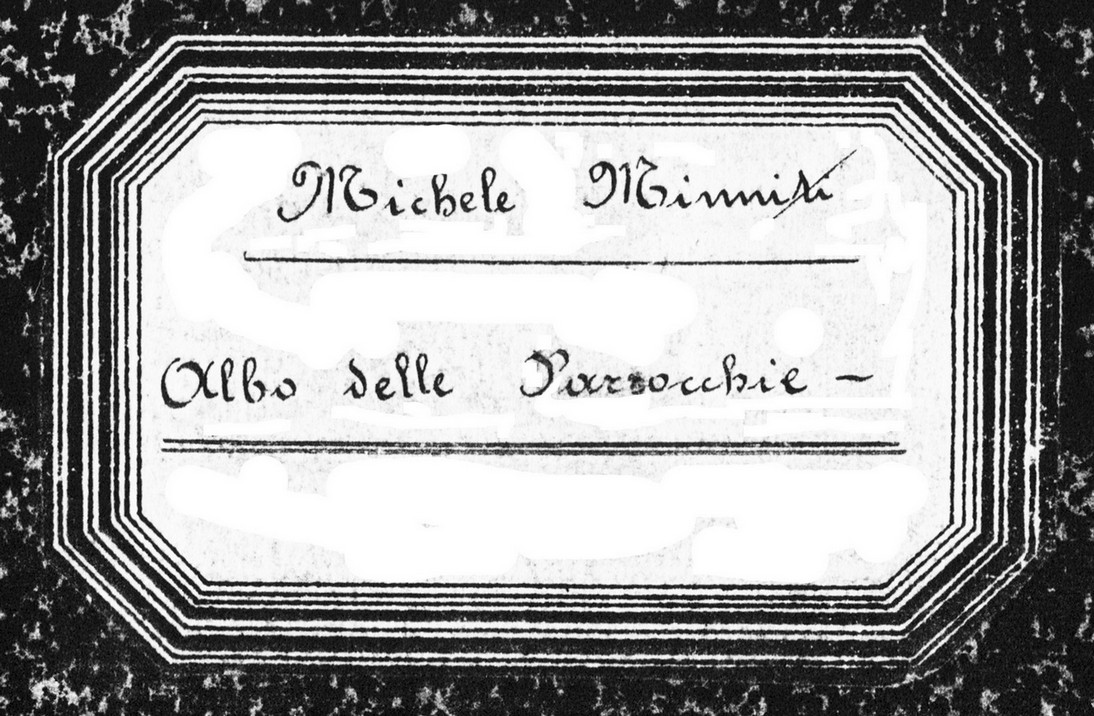 Michele Minniti
Albo delle Parrocchie –